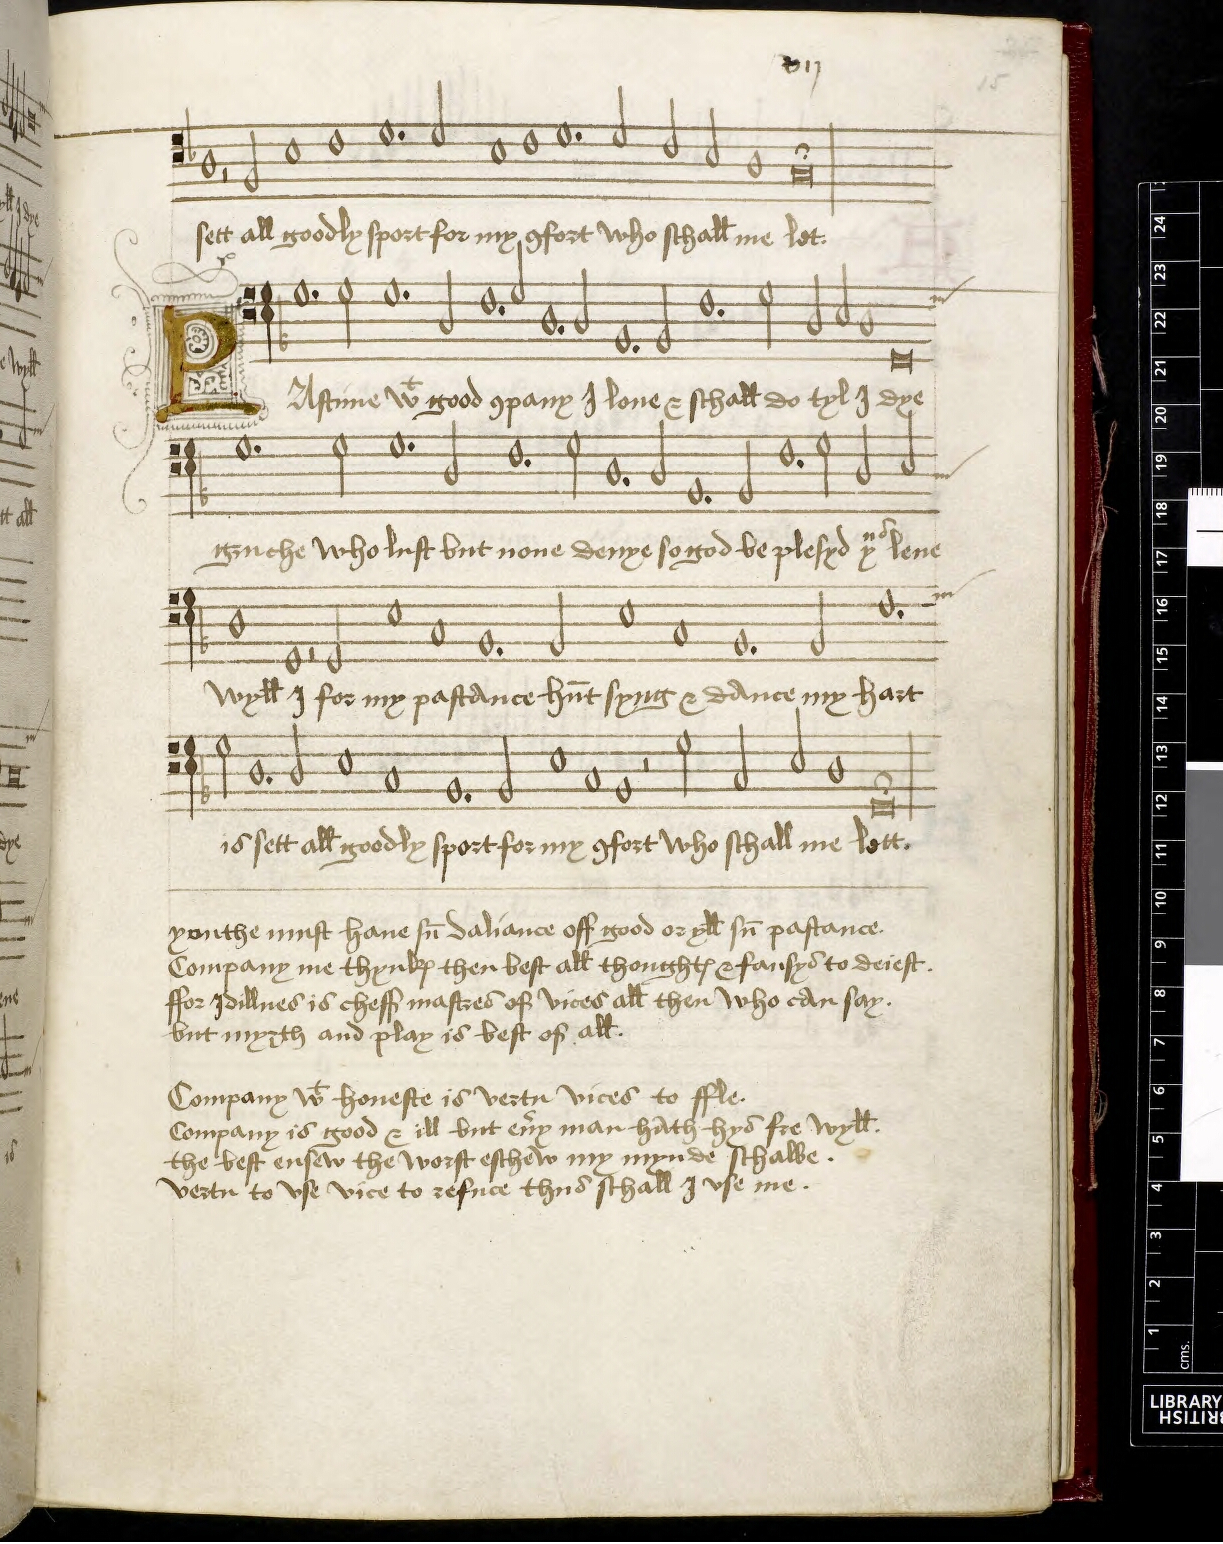 vij
15
sett all goodly sport for my ꝯfort who schall me let.
PAstime wt good ꝯpany I loue & schall do tyl I dye
gruche who lust but none denye so god be plesyd yus leue
wyll I for my pastance hūt syng & dance my hart
is sett all goodly sport for my ꝯfort who schall me lett.
youthe must haue sū daliance off good or yll sū pastance.
Company me thynkꝭ then best all thoughtꝭ & fansys to deiest.
ffor Idillnes is cheff mastres off vices all then who can say.
but myrth and play is best off all.
Company wt honeste is vertu vices to ffle.
Company is good & ill but eu̾y man hath hys fre wyll.
the best ensew the worst eschew my mynde schalbe.
vertu to vse vice to refuce thus schall I vse me.
24
23
22
21
20
19
18
17
16
15
14
13
12
11
10
9
8
7
6
5
4
3
2
1
cms.
LIBRARY
BRITISH